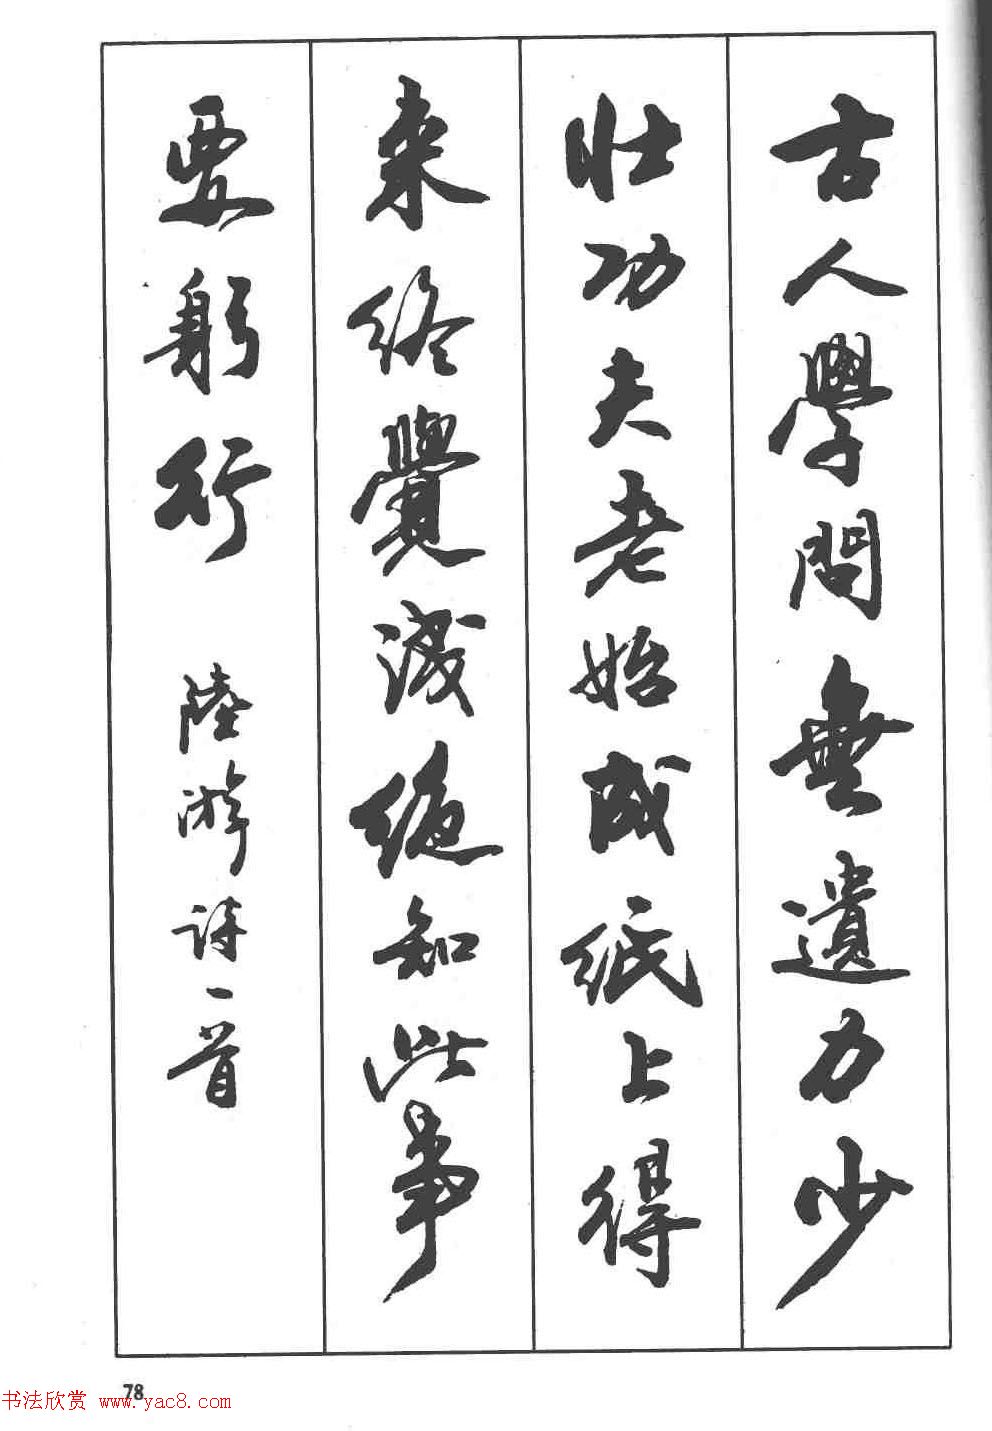 古人學問無遺力少
壮功夫老始成紙上得
来終覺淺絶知此事
要躬行 陸游詩一首
78
书法欣赏 www.yac8.com